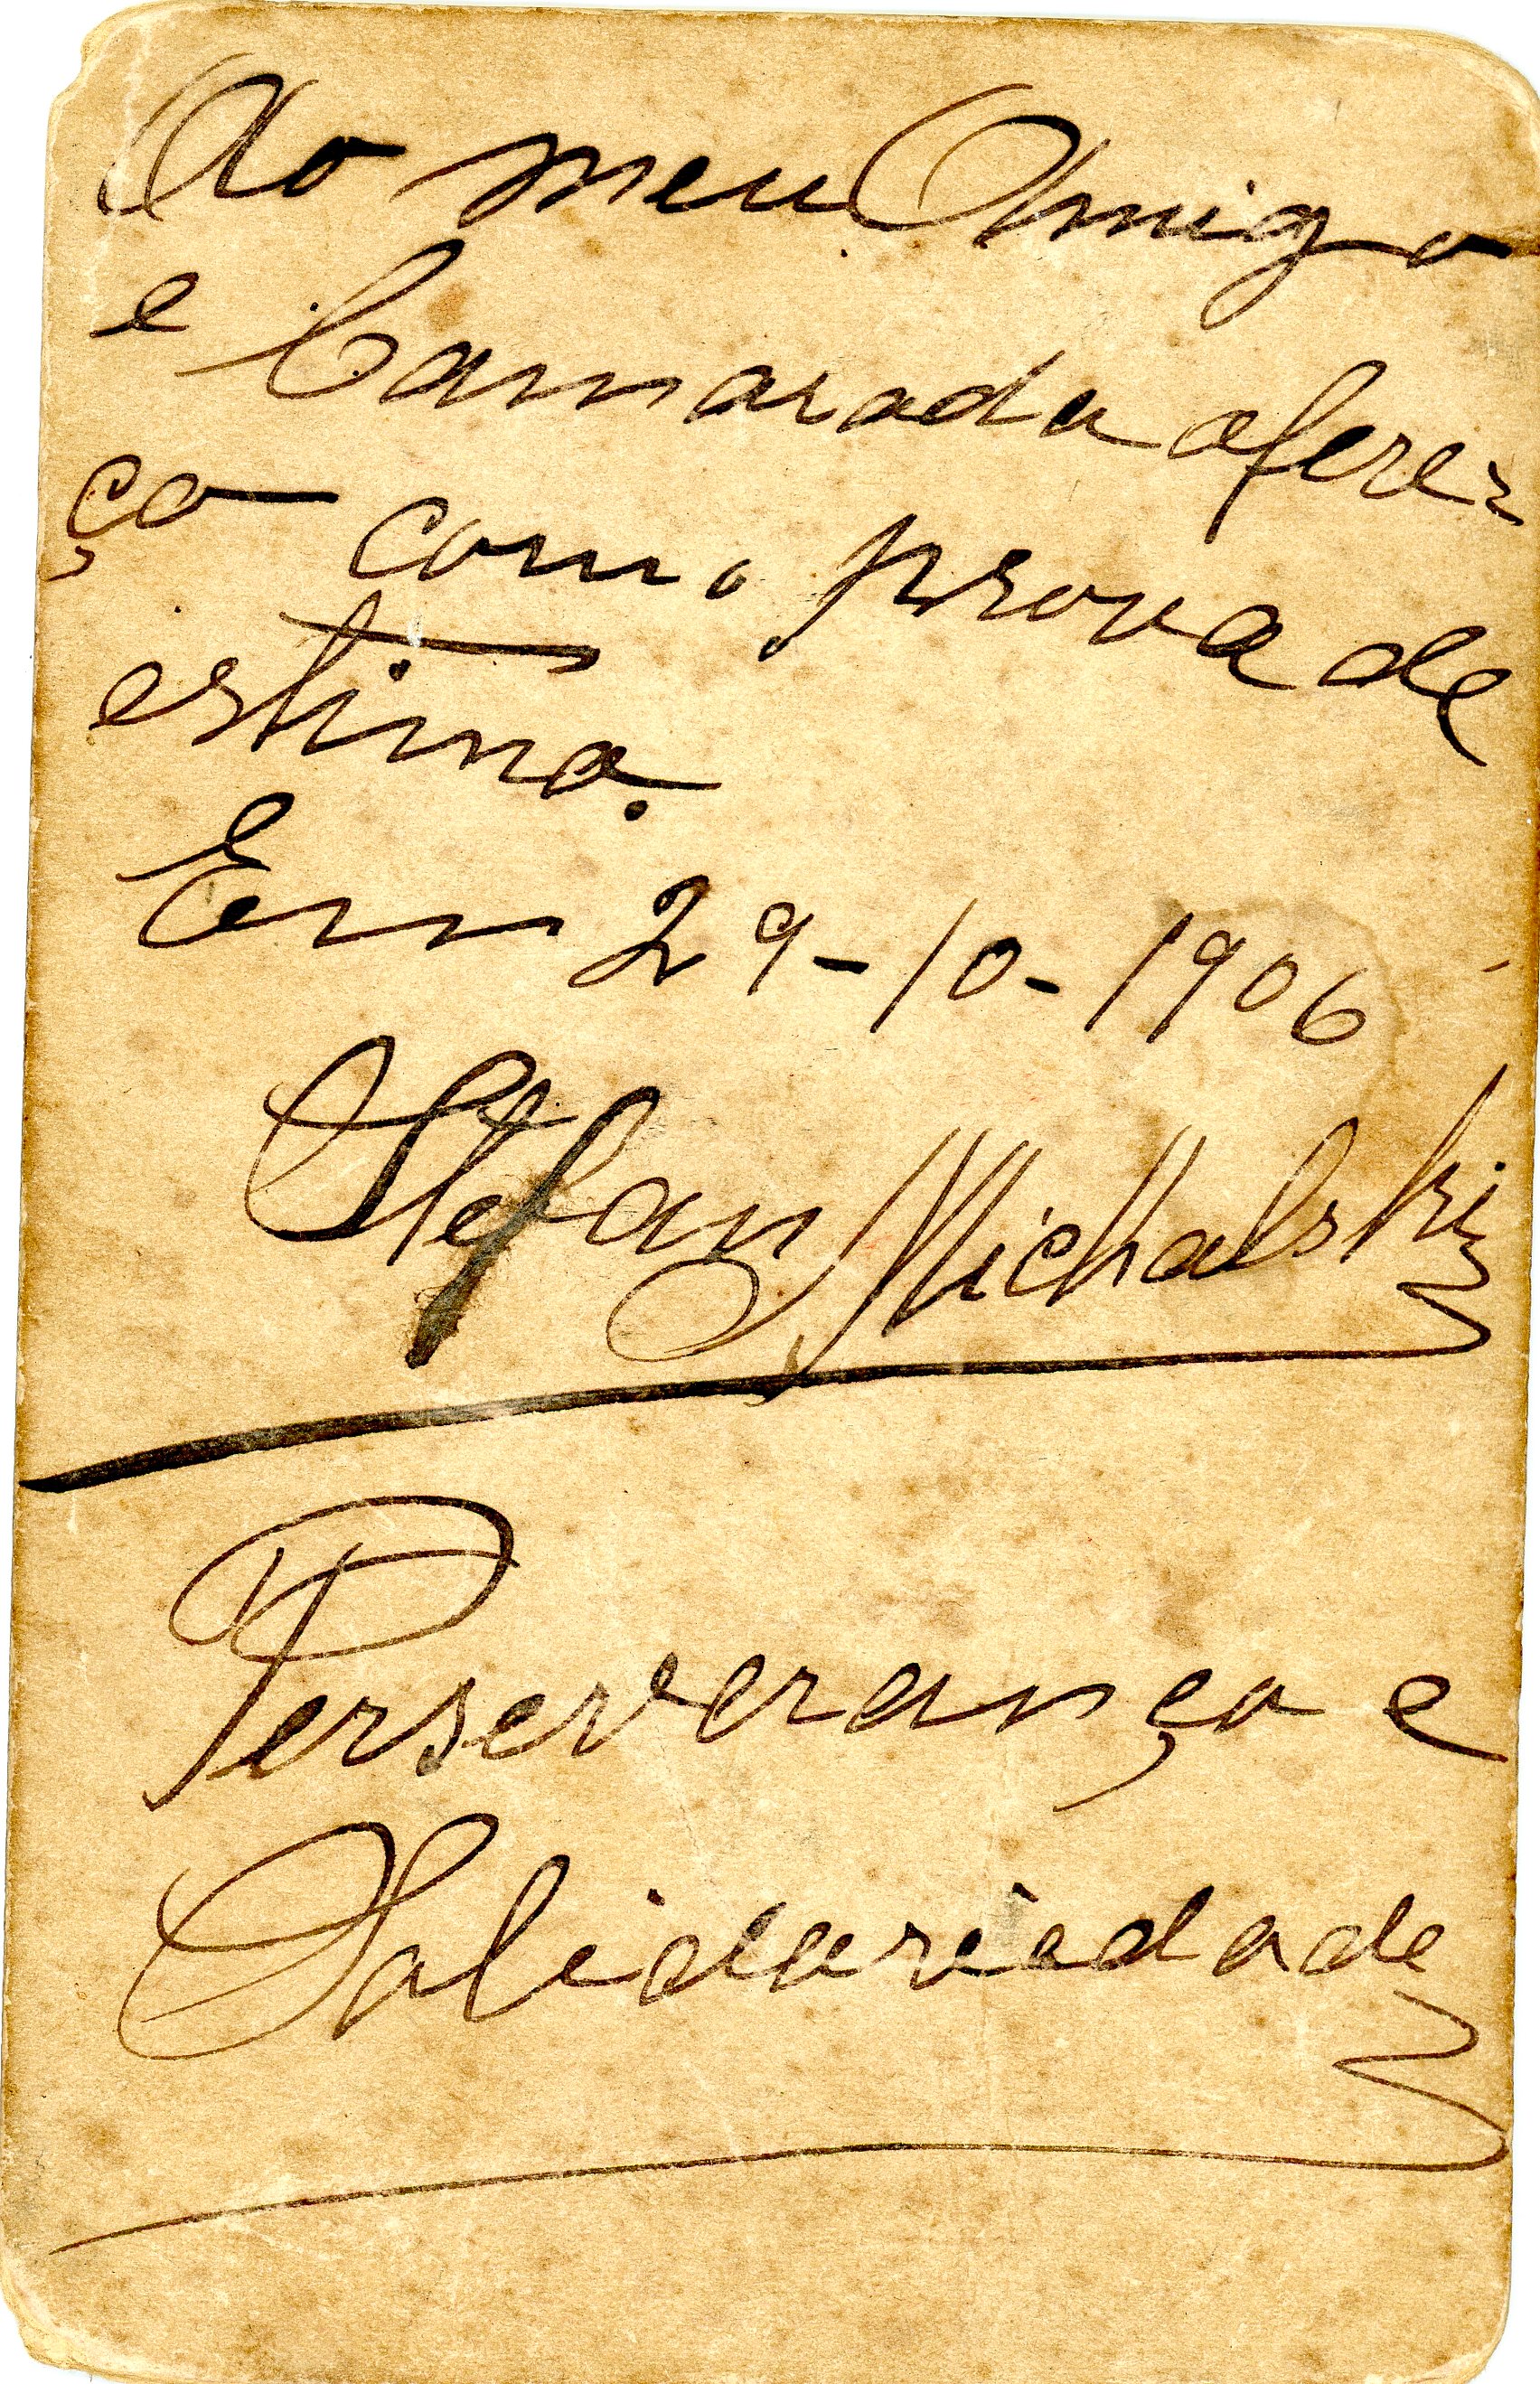 Ao meu Amigo
e Camarada offere=
ço como prova de
estima.
Em 29-10-1906
Stefan Michalski
Perseverança e
Solidariedade